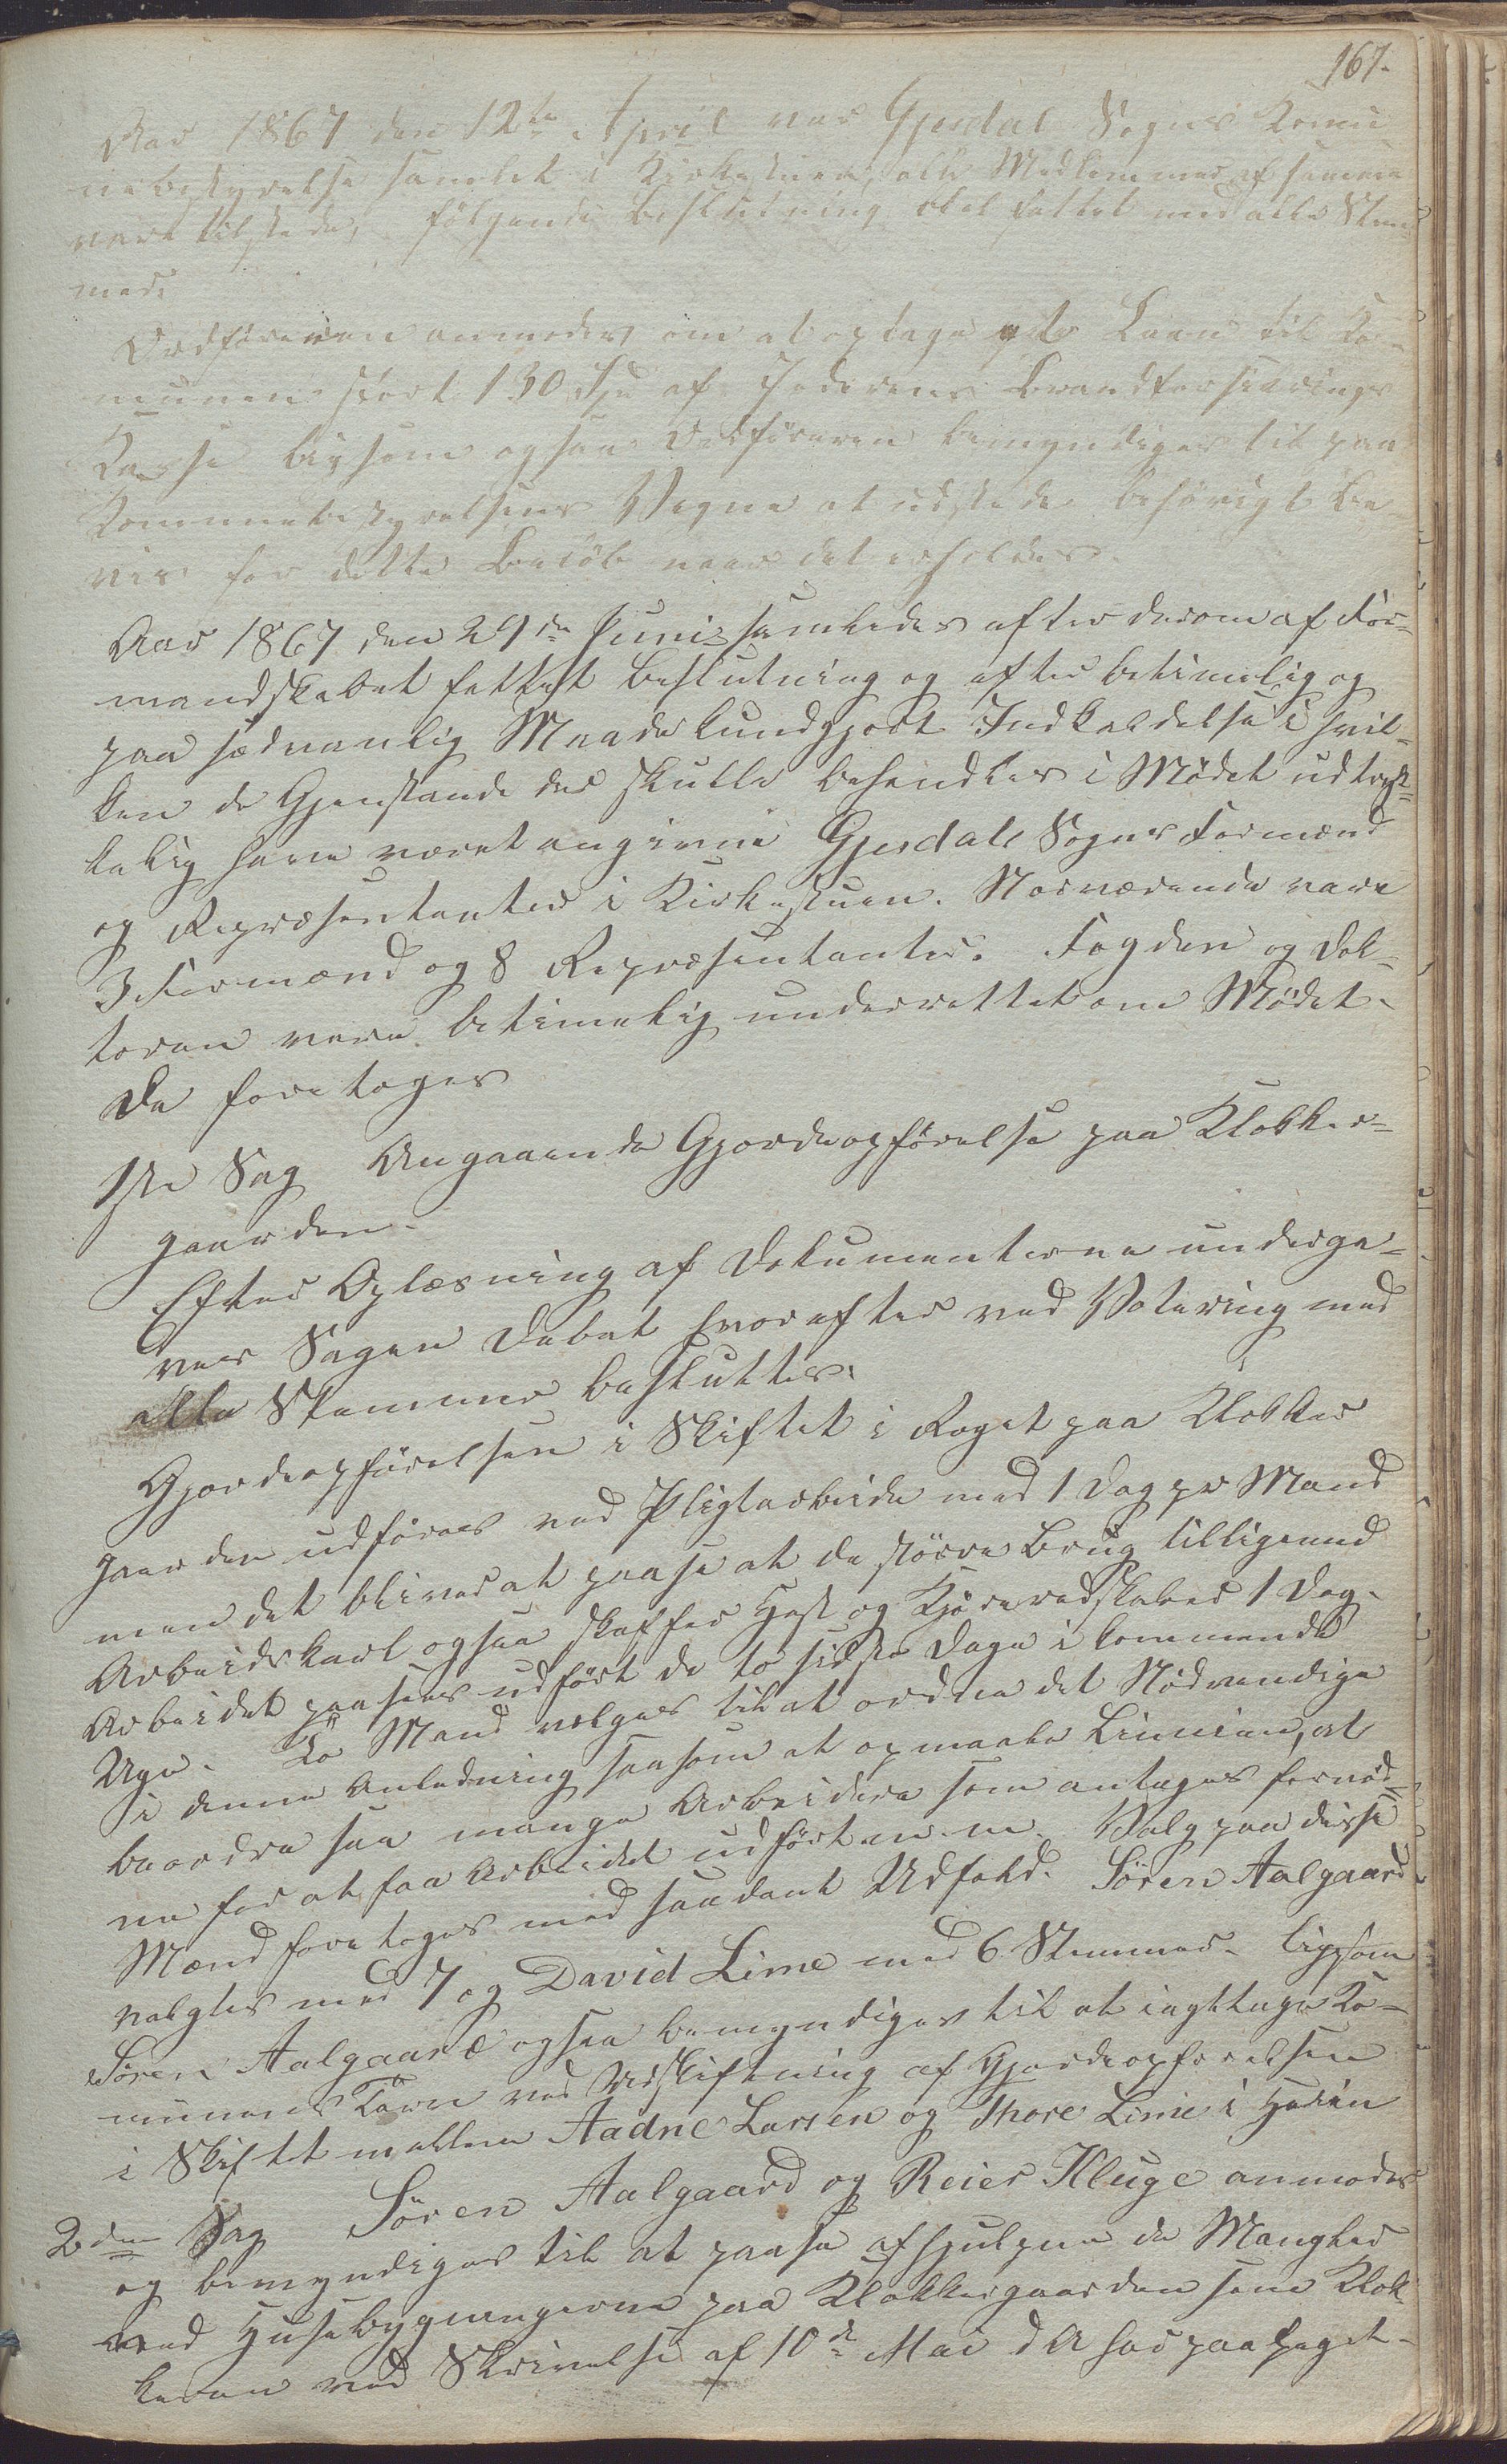 167.
Aar 1867 den 12te April var Gjesdal Sogns Komu
nebestyrelse samlet i Kirkestuen, alle Medlemmer af samme
vare tilstede, følgende Beslutning blel fattet med alle Stem-
mer:
Ordføreren anmodes om at optage et Laan til Ko-
munen stort 130 Spd af Jederens Brandforsikrings
Kasse ligesom ogsaa Ordføreren bemyndiges til paa
Kommunebestyrelsens Vegne at udstede behørigt Be
vis for dette Beløb naar det erholdes.
Aar 1867 den 29de Juni samledes efter derom af For-
mandskabet fattet Beslutning og efter betimelig og
paa sædvanlig Maade kundgjort Indkaldelse i hvil-
ken de Gjenstande der skulle behandles i Mødet udtryk-
kelig have været angivne Gjesdals Sogns Formænd
og Repræsentanter i Kirkestuen. Nærværende vare
3 Formænd og 8 Repræsentanter. Fogden og Dok-
toren vare betimelig underrettet om Mødet.
Da foretoges
1ste Sag Angaaende Gjerdeopførelse paa Klokker-
gaarden.
Efter Oplæsning af Dokumenterne underga-
ves Sagen Debat hvorefter ved Votering med
alle Stemmer besluttes:
Gjerdeopførelsen i Skiftet i Roget paa Klokker
gaarden udføres ved Pligtarbeide med 1 Dag pr Mand
men det bliver at paase at de større Brug tilligemed
Arbeidskarl ogsaa skaffer Hest og Kjøreredskaber 1 Dag.
Arbeidet paasees udført de to sidste Dage i kommende
Uge. To Mænd vælges til at ordne det Nødvendige
i denne Anledning saasom at opmaale Linnien, at
beordre saa mange Arbeidere som antages fornød-
ne for at faa Arbeidet udført m. m. Valg paa disse
Mænd foretoges med saadant Udfald: Søren Aalgaard
valgtes med 7 og David Lime med 6 Stemmer. ligesom
Søren Aalgaard ogsaa bemyndiges til at iagttage Ko-
munens Tarv ved Udskiftning af Gjerdeopførelsen
i Skiftet mellem Aadne Larsen og Thore Lime i Heien
2den Sag Søren Aalgaard og Reier Kluge anmodes
og bemyndiges til at paase afhjulpne de Mangler
ved Husebygningerne paa Klokkergaarden som Klok-
keren ved Skrivelse af 10de Mai d A har paapeget.